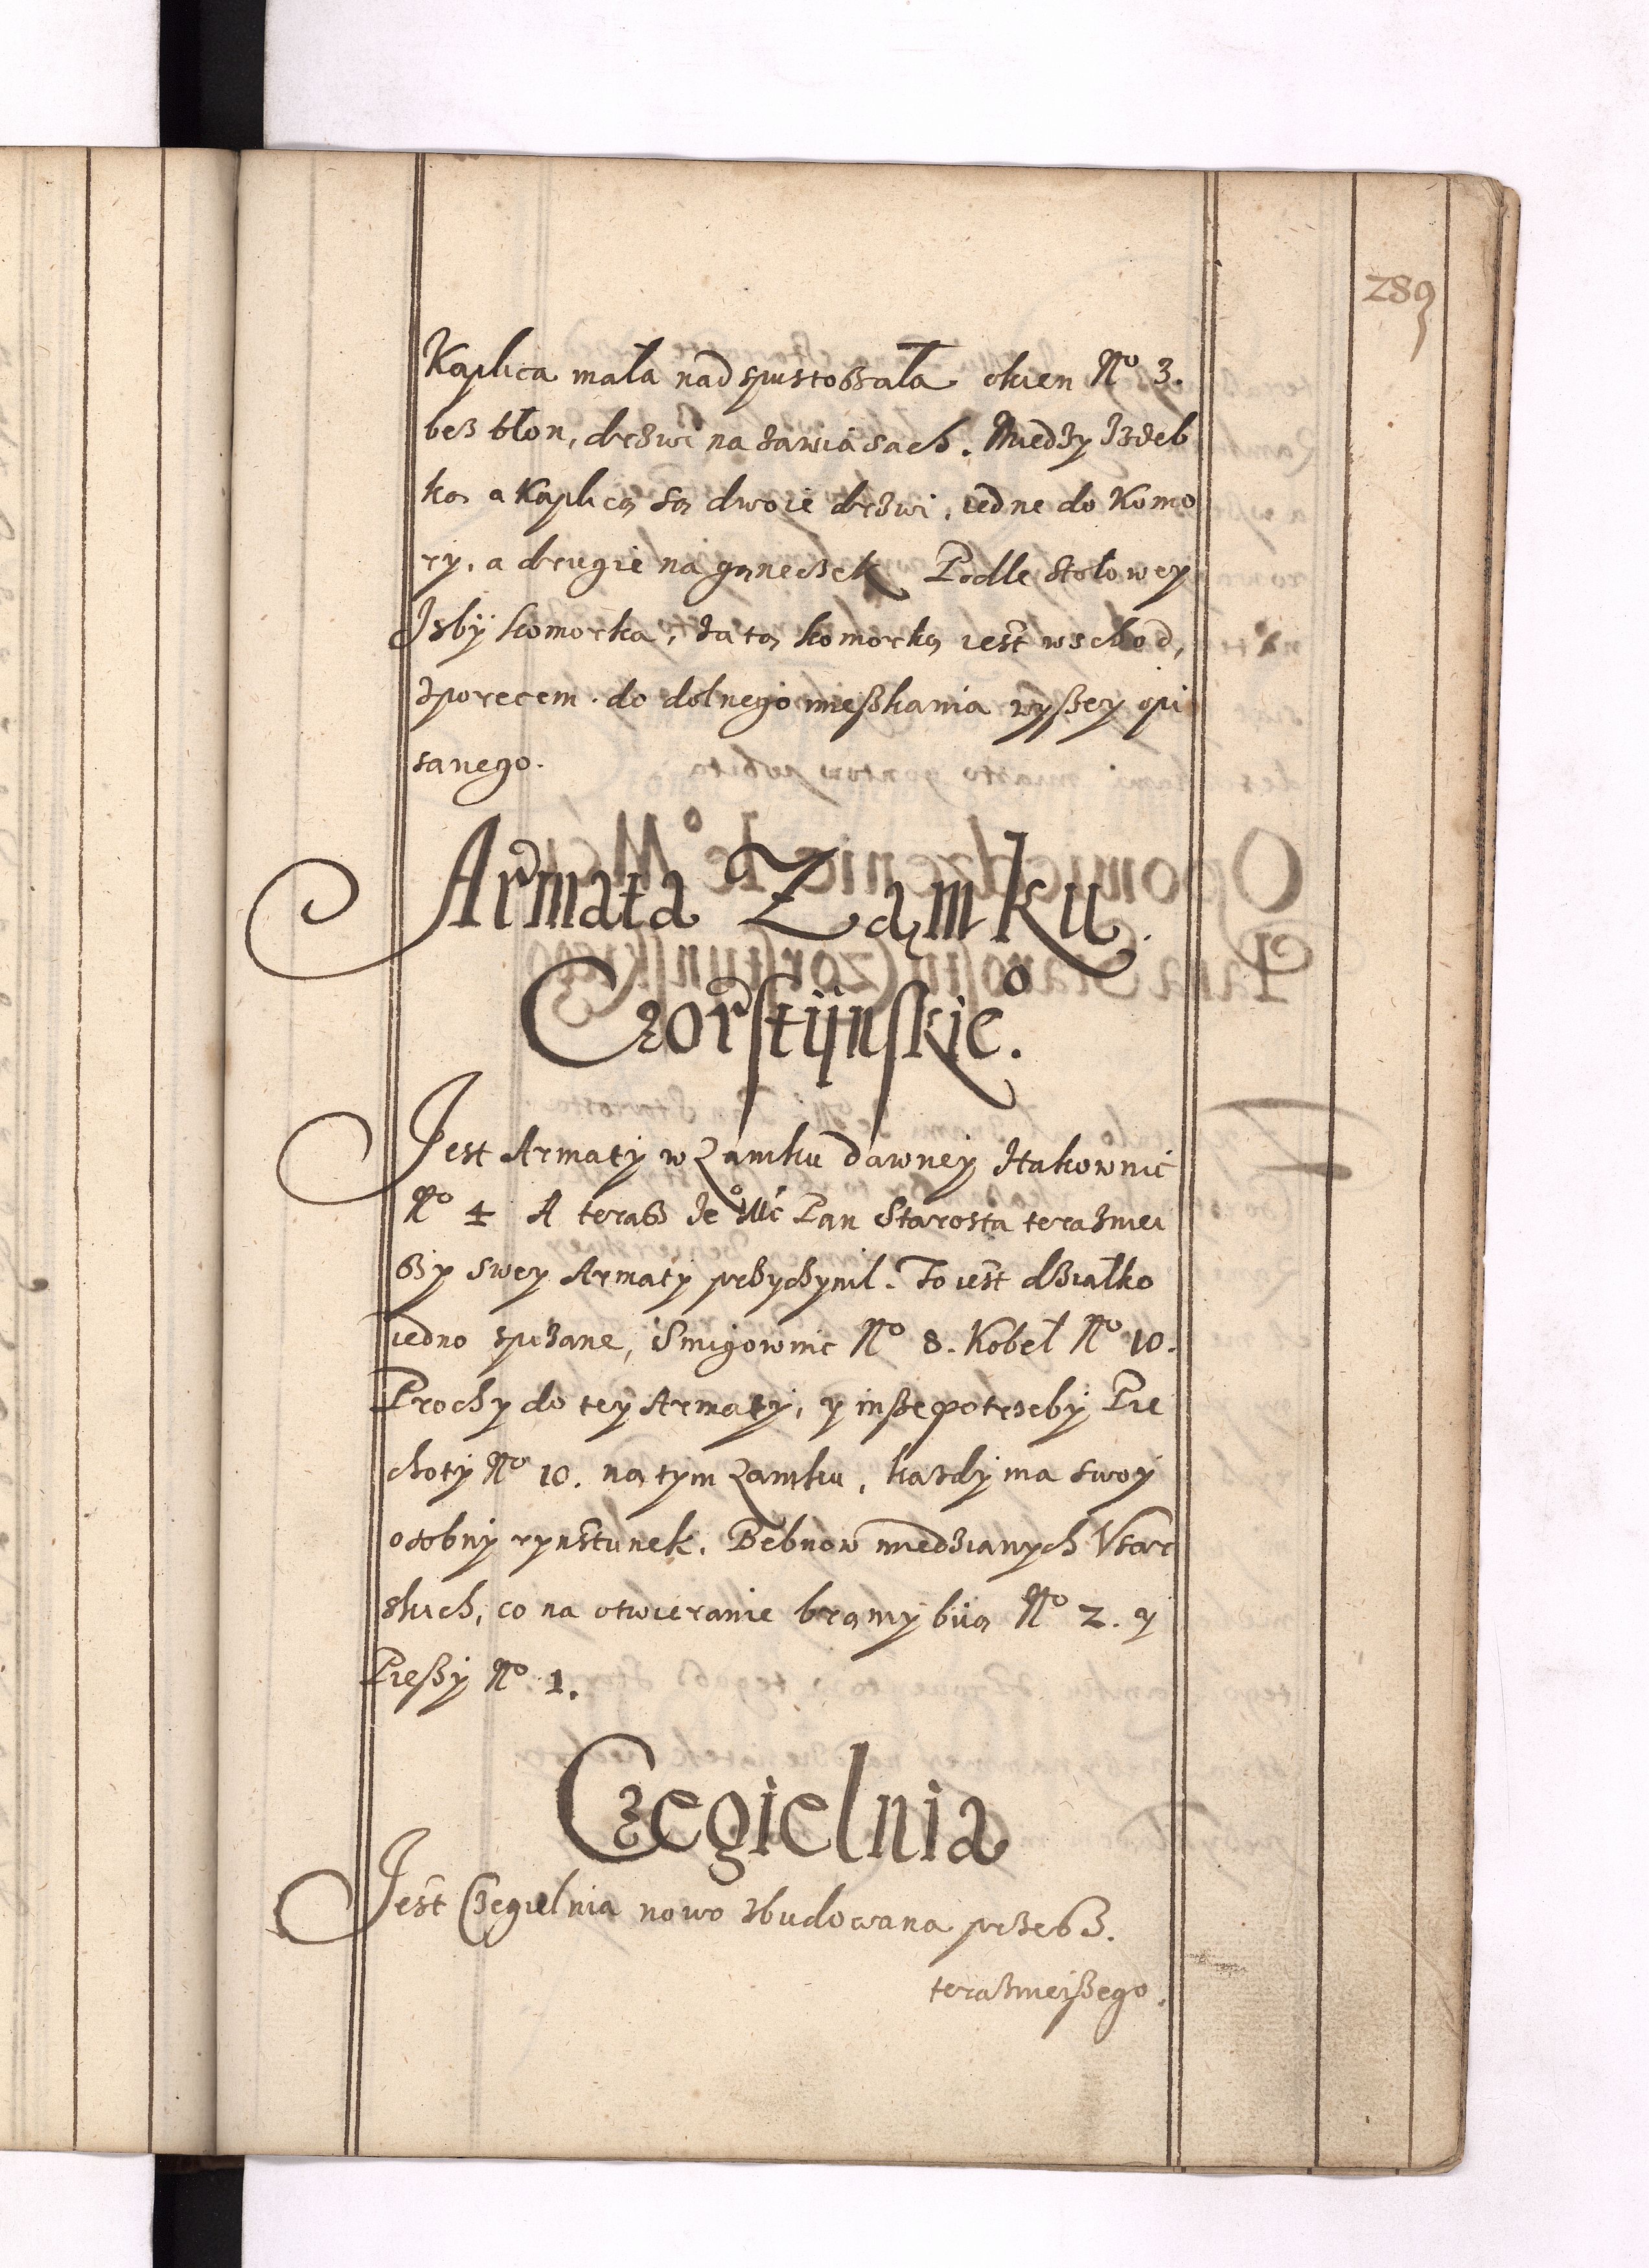 289
Kaplica mała nadspustoszała okien No 3.
bez błon, drzwi na zawiasach. Miedzy Izdeb
ką a Kaplicą są dwoie drzwi, iedne do Komo
ry, a drugie na ganeczek Podle stołowey
Izby komorka, za tą komorką iest wschod,
z porecem do dolnego mieszkania wyßey opi
sanego.
Armata Zamku
Czorstynskieo.
Jest Armaty w Zamku dawney Hakownic
No 4 A teraz Jeo Mć Pan Starosta teraznie
szy swey Armaty przyczynil. To iest działko
iedno spizane, Smigownic No 8. Kobeł No 10.
Prochy do tey Armaty, y inße potrzeby Pie
choty No 10. na tym Zamku, kazdy ma swoy
osobny rynsztunek. Bebnow miedzianych Vsar
skich, co na otwieranie bramy biią No 2. y
Pießy No 1.
Czegielnia
Jest Czegielnia nowo zbudowana przesz.
teraznieißego.